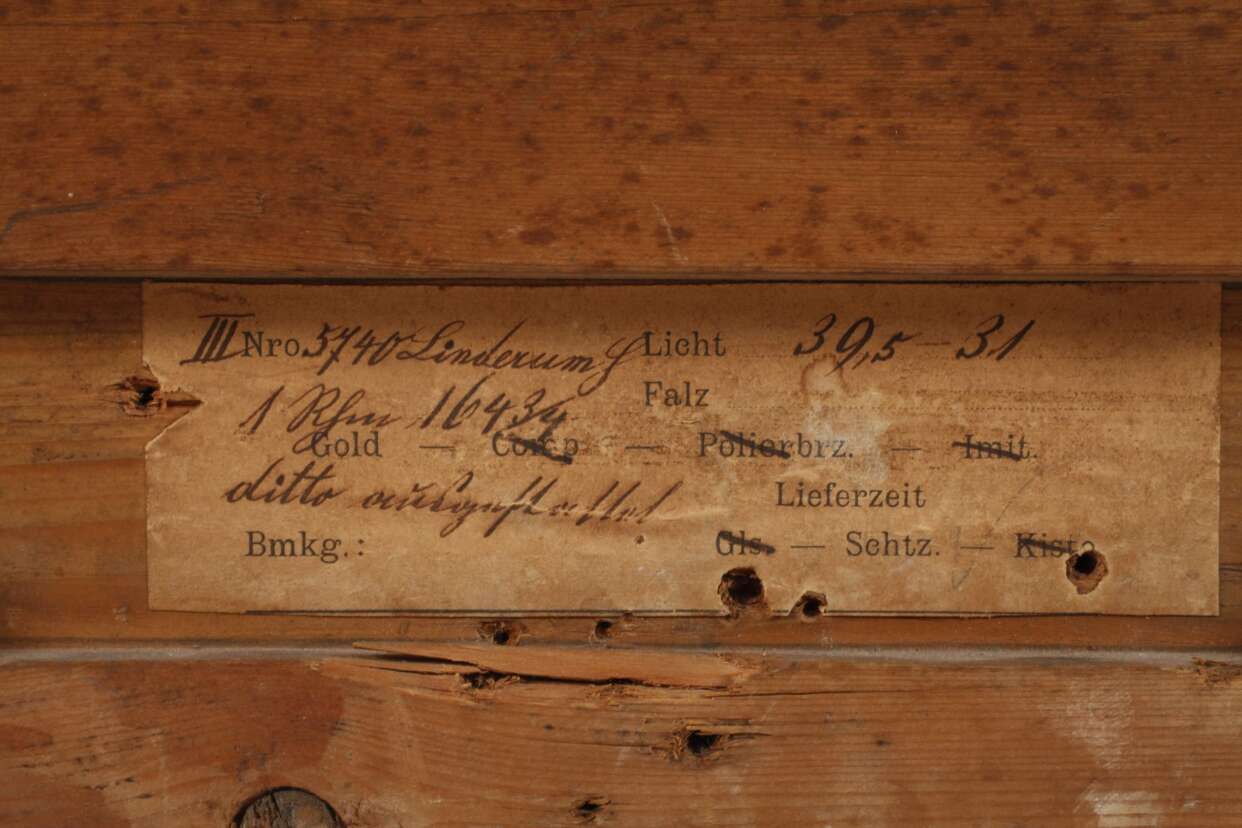 III Nro 5740 Linderum Licht 39,5 — 31
Falz
1 Rhm 16434
Gold — Comp — Polierbrz. — Imit.
ditto ausgestattet
Lieferzeit
Bmkg.: Gls. — Schtz. — Kiste